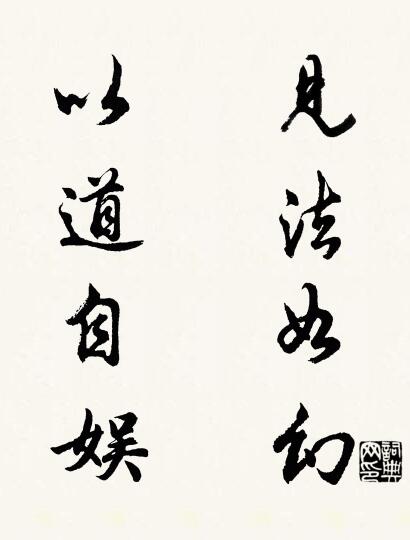 見法如幻
以道自娱
詞典網印